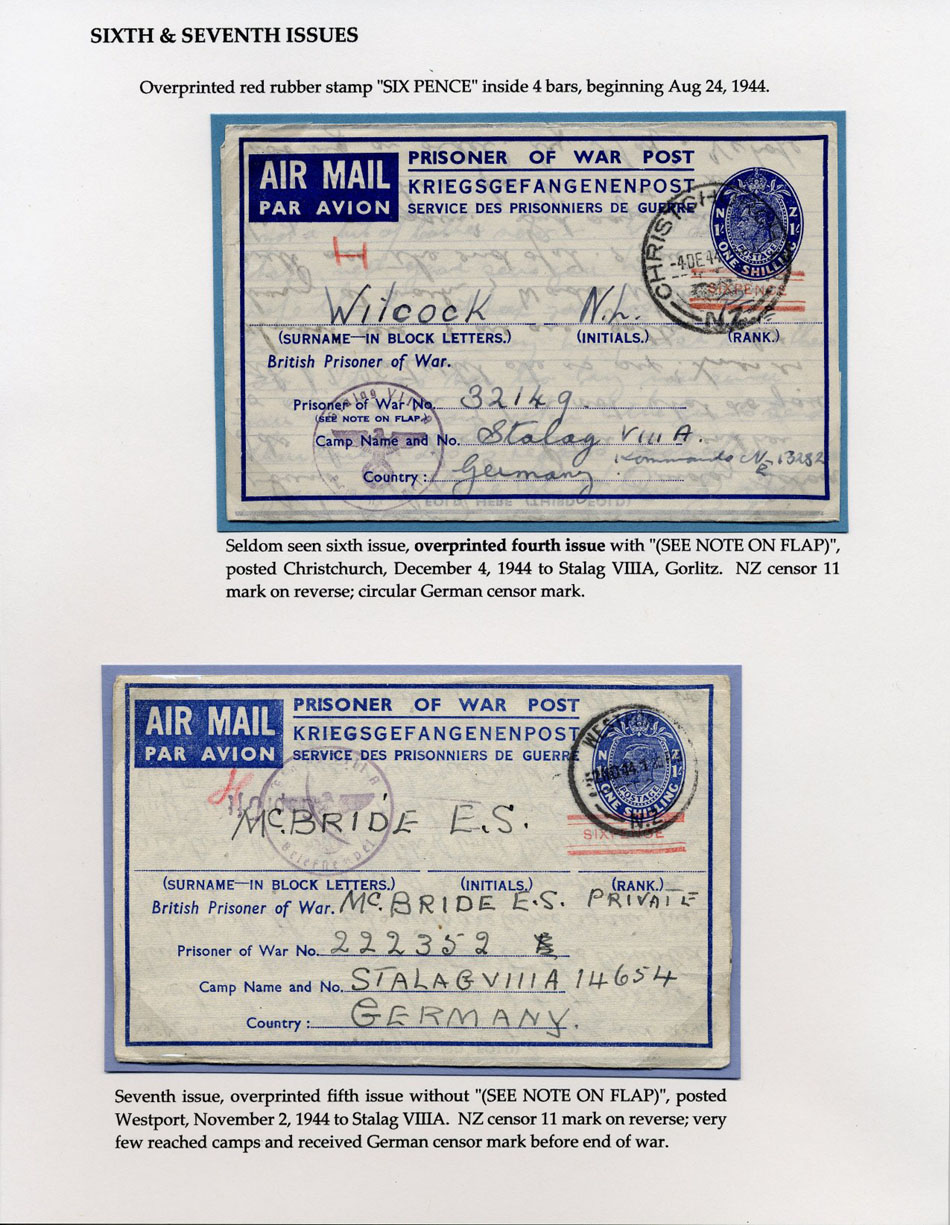 SIXTH & SEVENTH ISSUES
Overprinted red rubber stamp "SIX PENCE" inside 4 bars, beginning Aug 24, 1944.
AIR MAIL
PAR AVION
PRISONER OF WAR POST
KRIEGSGEFANGENENPOST
SERVICE DES PRISONNIERS DE GUERRE
N Z
1/- 1/-
POSTAGE
ONE SHILLING
CHRISTCH
-4DE 44
N.Z.
SIXPENCE
H
Wilcock N.L.
(SURNAME—IN BLOCK LETTERS.) (INITIALS.) (RANK.)
British Prisoner of War.
Prisoner of War No. 32149.
(SEE NOTE ON FLAP.)
Camp Name and No. Stalag VIII A.
Kommando No 13282
Country: Germany
Seldom seen sixth issue, overprinted fourth issue with "(SEE NOTE ON FLAP)",
posted Christchurch, December 4, 1944 to Stalag VIIIA, Gorlitz. NZ censor 11
mark on reverse; circular German censor mark.
AIR MAIL
PAR AVION
PRISONER OF WAR POST
KRIEGSGEFANGENENPOST
SERVICE DES PRISONNIERS DE GUERRE
N Z
1/- 1/-
POSTAGE
ONE SHILLING
N.Z.
SIXPENCE
H
McBRIDE E.S.
(SURNAME—IN BLOCK LETTERS.) (INITIALS.) (RANK.)
British Prisoner of War. Mc.BRIDE E.S. PRIVATE
Prisoner of War No. 222352
Camp Name and No. STALAG VIIIA 14654
Country: GERMANY.
Seventh issue, overprinted fifth issue without "(SEE NOTE ON FLAP)", posted
Westport, November 2, 1944 to Stalag VIIIA. NZ censor 11 mark on reverse; very
few reached camps and received German censor mark before end of war.